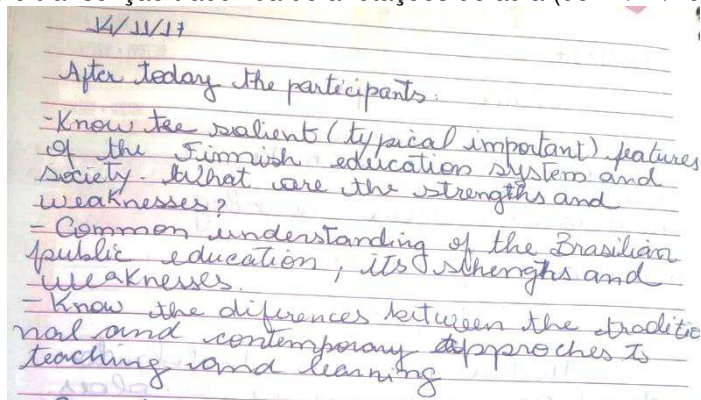 14/11/17
After today the participants:
- Know the salient (typical important) features
of the Finnish education system and
society. What are the strengths and
weaknesses?
- Common understanding of the Brasilian
public education, its sthenghs and
weaknesses.
- Know the diferences between the traditio
nal and contemporary approches to
teaching and learning